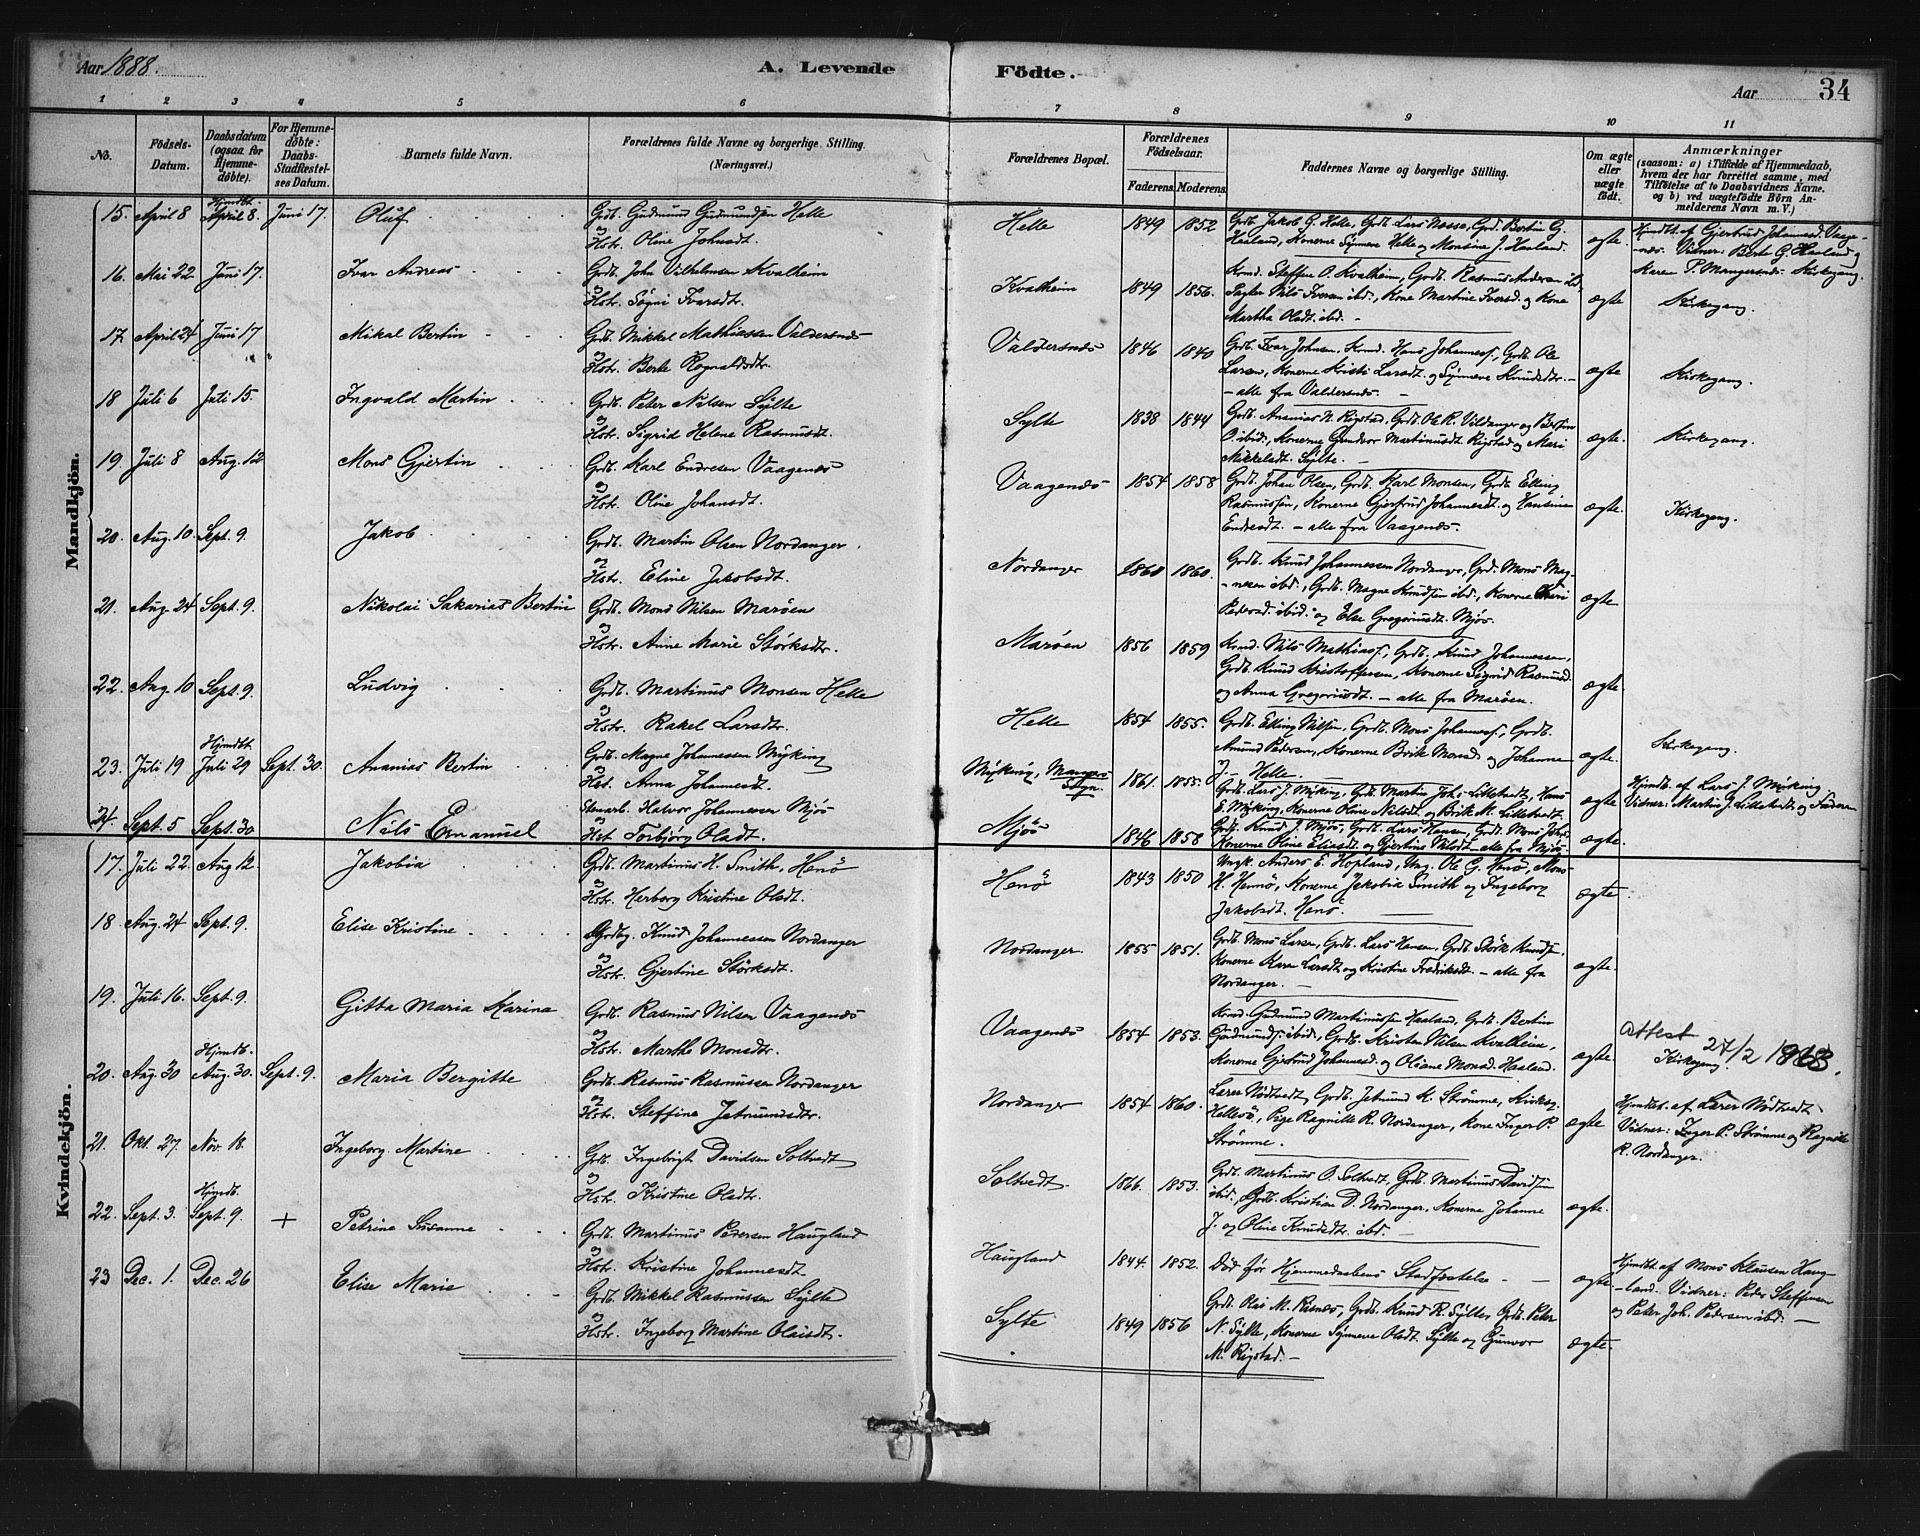 Aar 1888.
A. Levende Födte.
Aar
34
1 2 3 4 5 6 7 8 9 10 11
No.
Födsels-Datum.
Daabsdatum (ogsaa for Hjemmedöbte).
For Hjemmedöbte: Daabs-Stadfæstelses Datum.
Barnets fulde Navn.
Forældrenes fulde Navne og borgerlige Stilling. (Næringsvei.)
Forældrenes Bopæl.
Forældrenes Födselsaar.
Faderens. Moderens.
Faddernes Navne og borgerlige Stilling.
Om ægte eller uægte födt.
Anmærkninger (saasom: a) i Tilfælde af Hjemmedaab, hvem der har forrettet samme, med Tilföielse af to Daabsvidners Navne. og b) ved uægtefödte Börn Anmelderens Navn m. V.)
Mandkjön.
15. April 8 Hjmdbt. April 8. Juni 17. Oluf
Grdb. Gudmund Gudmundsen Helle
og Hstr. Oline Johnsdt.
Helle 1849 1852
Grdb. Jakob G. Helle, Grdb. Lars Nesse, Grd. Bertin G.
Haaland, Konerne Synneve Helle og Monsine J. Haaland.
ægte.
Hjmdbt. af Gjertrud Johannesd. Vaage-
næs. Vidner: Berte G. Haaland og
Karen P. Mangersnæs. Kirkegang.
16. Mai 22. Juni 17. Ivar Andreas
Grdb. John Vilhelmsen Kvalheim
og Hstr. Sögni Ivarsdt.
Kvalheim 1849 1856.
Krmd. Steffen O. Kvalheim, Grdb. Rasmus Andersen ibd.,
Nils Iversen ibd., Kone Martine Iversd. og Kone
Martha Olsdt. ibd. –
ægte
Kirkegang.
17. April 24 Juni 17 Mikal Bertin
Grdb. Mikkel Mathiassen Valdersnæs
og Hstr. Berte Ragnaldsdtr.
Valdersnæs 1846 1840
Grdb. Ivar Johnsen, Krmd. Hans Johanness., Grdb. Ole
Larsen, Konerne Kristi Larsdt. og Synneve Knudsdtr. –
– alle fra Valdersnæs. –
ægte
Kirkegang.
18 Juli 6 Juli 15. Ingvald Martin
Grdb. Peter Nilsen Sylte
og Hstr. Sigrid Helene Rasmusdt.
Sylte 1838 1844
Grdb. Ananias N. Rigstad, Grdb. Ole R. Vildanger og Bertin
O. ibid., Konerne Gundvor Martinusdt. Rigstad og Mari
Mikkelsdt. Sylte. –
ægte.
Kirkegang.
19. Juli 8 Aug. 12 Mons Gjertin
Grdb. Karl Endresen Vaagenæs
og Hstr. Oline Johansdt.
Vaagenæs 1854 1858
Grdb. Johan Olsen, Grdb. Karl Monsen, Grdb. Elling
Rasmussen, Konerne Gjertrud Johannesdt. og Hansine
Endresdt. – alle fra Vaagenæs.
ægte.
Kirkegang.
20. Aug. 10 Sept. 9. Jakob
Grdb. Martin Olsen Nordanger.
og Hst. Eline Jakobsdt.
Nordanger 1860 1860.
Grdb. Knud Johannessen Nordanger, Grd. Mons Mag-
nesen ibd., Grdb. Magne Knudsen ibd., Konerne Kari
Pedersd. ibid. og Else Gregoriusdt. Mjös.
ægte
21. Aug. 24 Sept. 9. Nikolai Sakarias Bertin
Grdb. Mons Nilsen Maröen
og Hstr. Anne Marie Störksdtr.
Maröen 1856 1859
Krmd. Nils Mathiass., Grdb. Knud Johannessen,
Grdb. Knud Kristoffersen, Konerne Sigrid Rasmusd.
og Anna Gregoriusdt. – alle fra Maröen.
ægte.
22. Aug. 10 Sept. 9. Ludvig
Grdb. Martinus Monsen Helle
og Hstr. Rakel Larsdt.
Helle 1854 1855.
Grdb. Elling Nilsen, Grdb. Mons Johanness., Grdb.
Amund Pedersen, Konerne Brite Monsd. og Johanne
J. – Helle.
ægte.
Kirkegang.
23. Juli 19 Hjmdbt. Juli 29 Sept. 30. Ananias Bertin
Grdb. Magne Johannessen Myking
og Hst. Anna Johannesdt.
Myking, Mangers Sogn. 1861. 1855.
Grdb. Lars J. Myking, Grdb. Martin Joh. Lillebdt., Hans
E. Myking, Konerne Oline Nilsdt. og Brite M. Lilletvedt.
ægte
Hjmdbt. af Lars J. Myking
Vidner: Martin J. Lilletvedt og Faderen
24. Sept. 5 Sept. 30 Nils Emanuel
Halvor Johannesen Mjös
og Hst. Torbjörg Olsdt.
Mjös 1846 1858
Grdb. Knud J. Mjös, Grdb. Lars Hansen, Grdb. Mons Johs.
Konerne Oline Eliasdt. og Gjertine Nilsdt. – alle fra Mjös.
ægte.
Kvindekjön.
17. Juli 22 Aug 12. Jakobia
Grdb. Martinus H. Smith, Henö
og Hstr. Herborg Kristine Olsdt.
Henö 1843 1850
Ungk. Anders E. Hopland, Ung. Ole G. Henö, Mons
H. Hennö, Konerne Jakobia Smith og Ingeborg
Jakobsdt. Henö.
ægte.
18 Aug. 24 Sept. 9. Elise Kristine
Grdbg. Knud Johannessen Nordanger
og Hstr. Gjertine Störksdt.
Nordanger 1855 1851.
Grdb. Mons Larsen, Grdb. Lars Hansen, Grdb. Störk Knudsen,
Konerne Kari Larsdt. og Kristine Fredriksdt. – alle fra
Nordanger. –
ægte.
19. Juli 16. Sept. 9. Gitta Maria Karina
Grdb. Rasmus Nilsen Vaagenæs
og Hstr. Marthe Monsdtr.
Vaagenæs 1854 1853.
Krmd. Gudmund Martinussen Haaland, Grdb. Bertin
Gudmunds. ibid., Grdb. Kristen Nilsen Kvalheim,
Konerne Gjertrud Johannesd. og Oliane Monsd. Haaland.
ægte
Attest 27/2
Kirkegang.
20. Aug. 30 Hjmdbt. Aug. 30. Sept. 9. Maria Bergitte
Grdb. Rasmus Rasmussen Nordanger
og Hst. Steffine Jetmundsdtr.
Nordanger 1854 1860.
Lærer Nödtvedt, Grdb. Jetmund K. Strömme,
Hellesö, Pige Ragnilde R. Nordanger, Kone Inger P.
Strömme.
ægte
Hjmdbt. af Lærer Nödtvedt
Vidner: Inger P. Strömme og Ragnilde
R. Nordanger.
21. Okt. 27 Nov. 18. Ingeborg Martine
Grdb. Ingebrigt Davidsen Soltvedt
og Hstr. Kristine Olsdt.
Soltvedt. 1866. 1853.
Grdb. Martinus O. Soltvedt, Grdb. Martinus Davidsen
ibid., Grdb. Kristian D. Nordanger, Konerne Johanne
J. og Oline Knudsdt. ibd.
ægte.
22. Sept. 3. Hjmdbt. Sept. 9. + Petrine Susanne
Grdb. Martinus Pedersen Haugland
og Hstr. Kristine Johannesdt.
Haugland 1844. 1852.
Död för Hjemmedaabens Stadfæstelse. –
ægte
Hjmdbt. af Mons Klausen Haug-
land. Vidner: Peder Steffensen
og Peter Joh. Pedersen ibd. –
23 Dec. 1. Dec. 26 Elise Marie
Grdb. Mikkel Rasmussen Sylte
og Hstr. Ingeborg Martine Olaisdt.
Sylte 1849 1856
Grdb. Olai M. Risnæs, Grdb. Knud R. Sylte, Grdb. Peter
N. Sylte, Konerne Synneve Olsdt. Sylte og Gunvor
M. Rigstad. –
ægte.